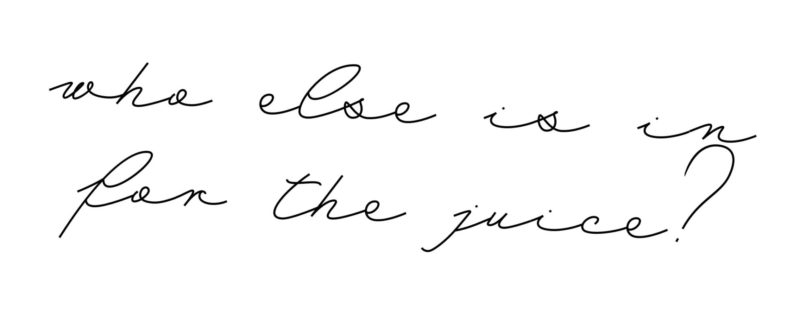 who else is in
for the juice?